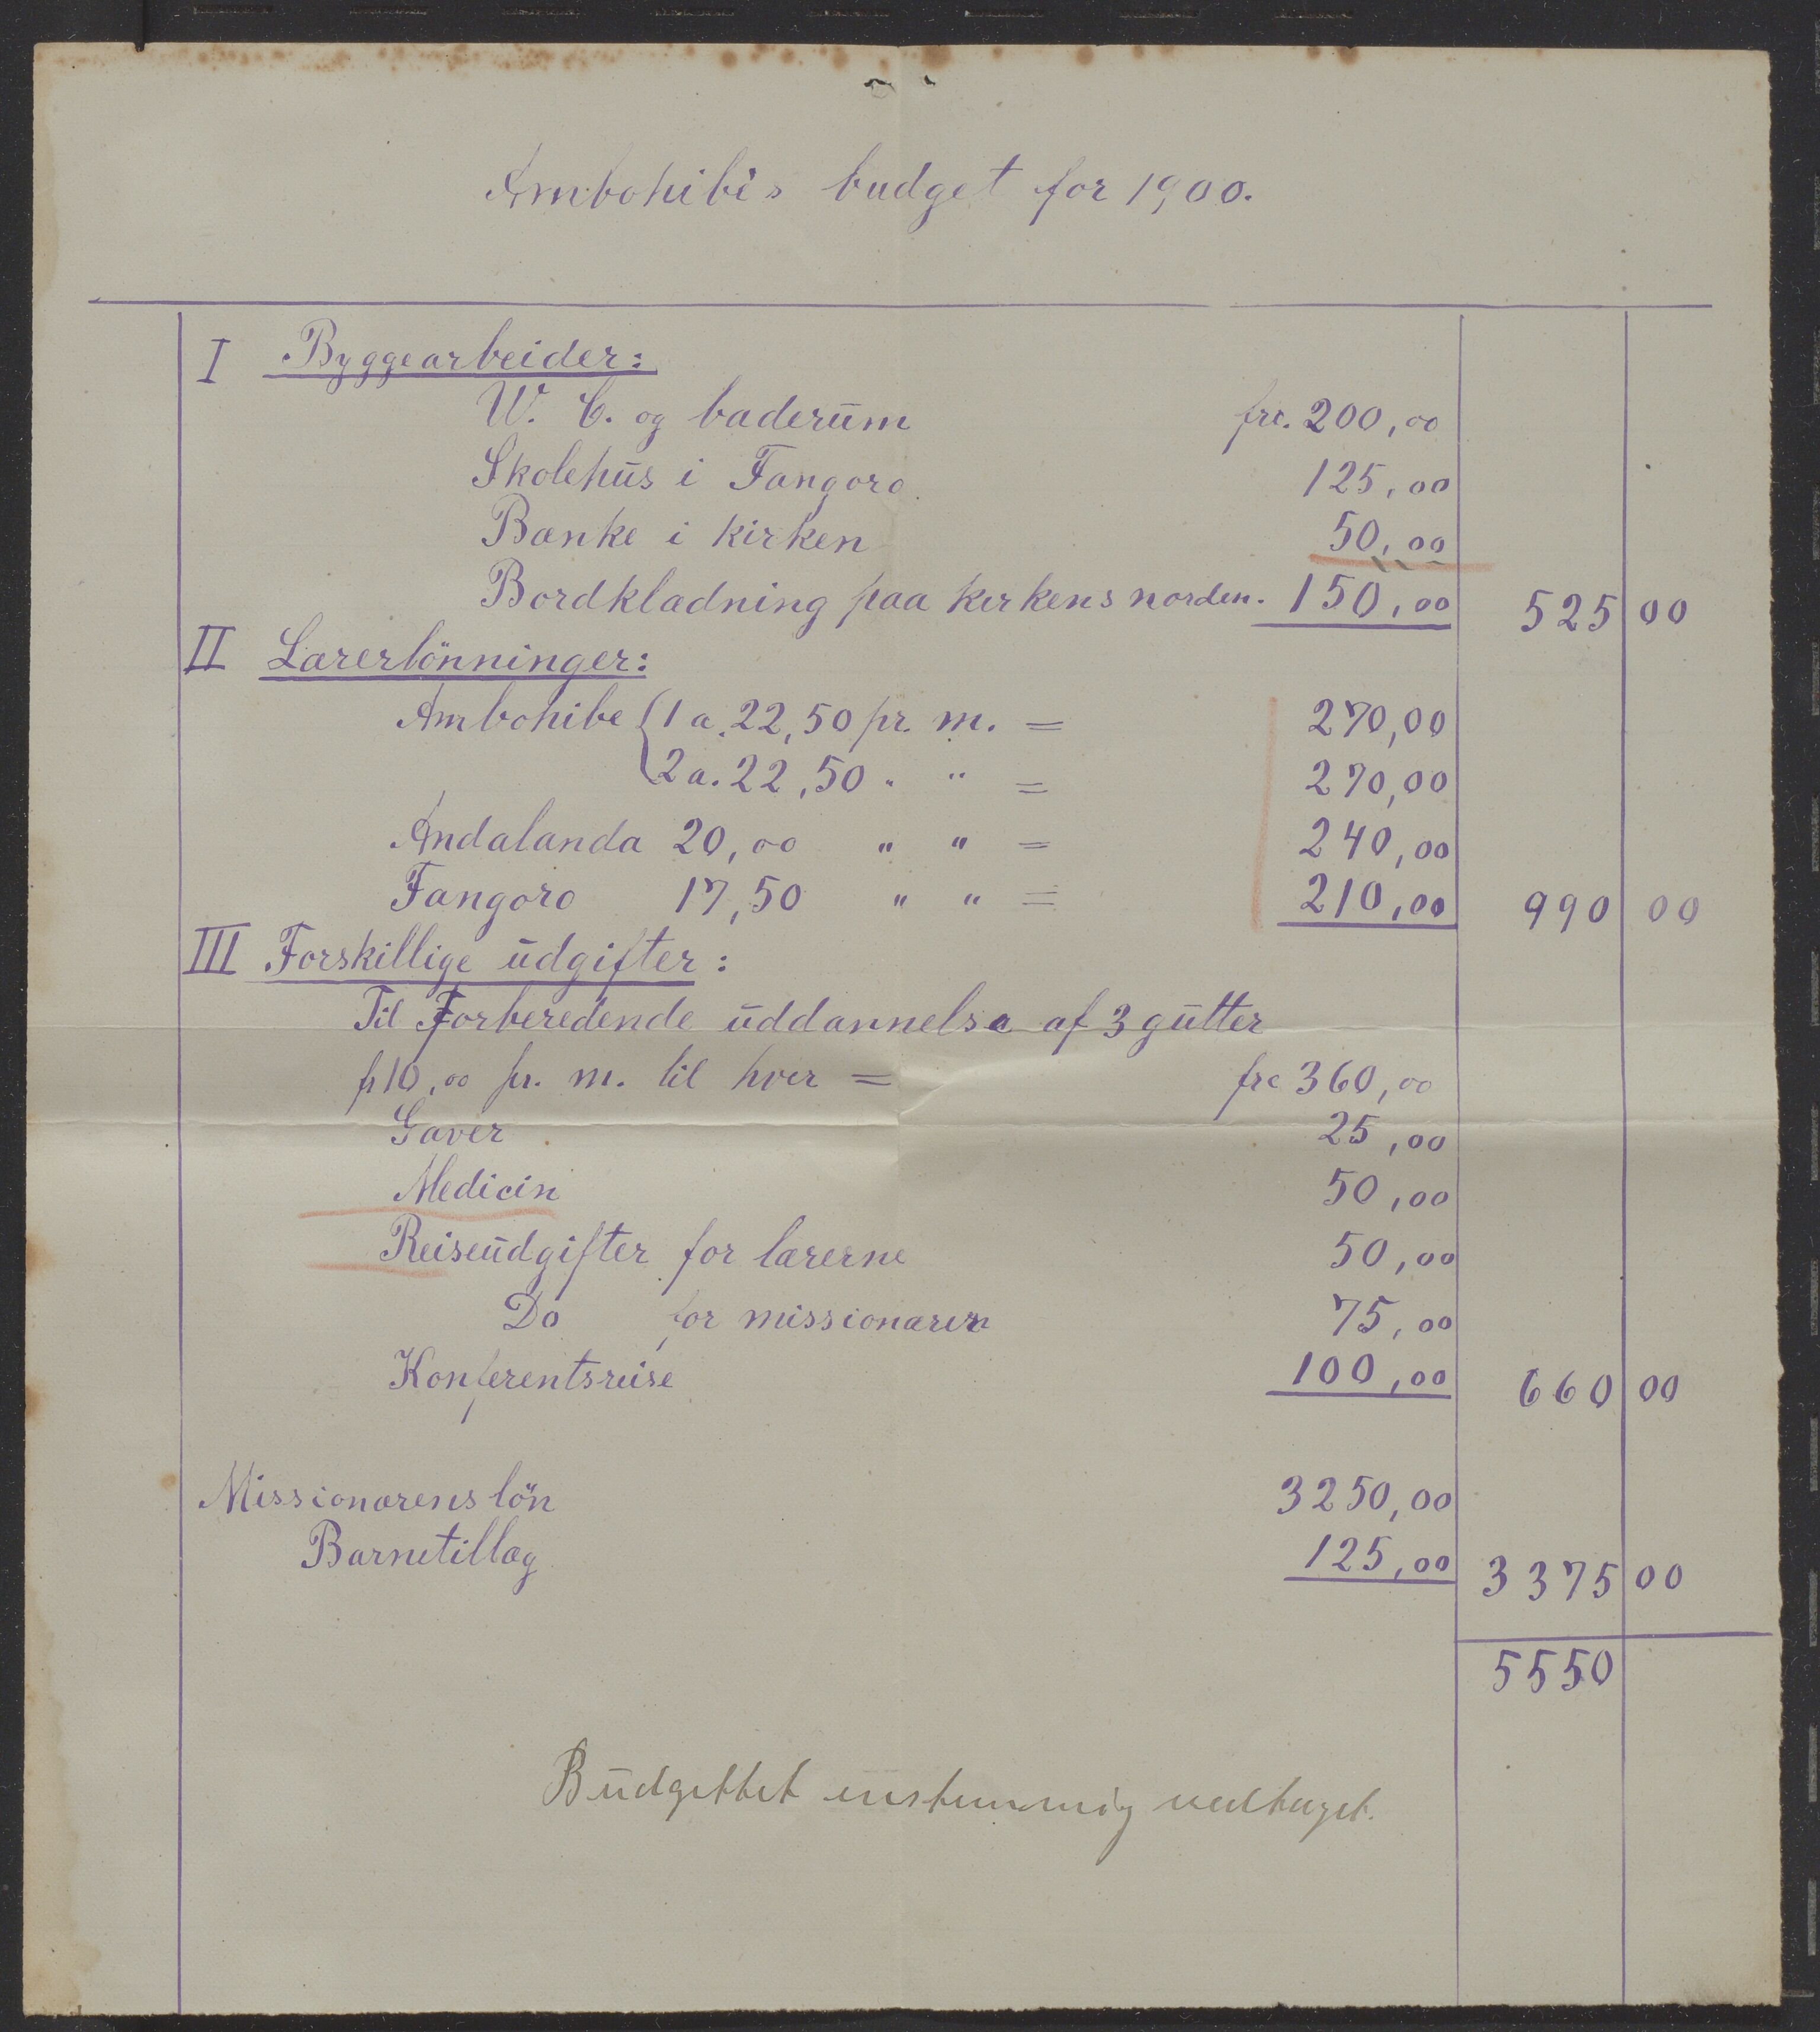 Ambohibès budget for 1900.
I Byggearbeider:
W. C. og baderūm frc. 200,00
Skolehūs i Fangoro. 125,00
Bænke i kirken 50,00
Bordklædning paa kirkens norden. 150,00 525 00
II Lærerlönninger:
Ambohibe { 1 a. 22,50 pr. m. = 270,00
2 a. 22,50 " " = 270,00
Andalanda 20,00 " " = 240,00
Fangoro 17,50 " " = 210,00 990 00
III Forskillige ūdgifter:
Til Forberedende ūddannelse af 3 gūtter
fr 10,00 pr. m. til hver = frc 360,00
Gaver 25,00
Medicin 50,00
Reiseūdgifter for lærerne 50,00
Do for missionæren 75,00
Konferentsreise 100,00 660 00
Missionærens lön 3250,00
Barnetillæg 125,00 3375 00
5550
Būdgettet enstemmig vedtaget.